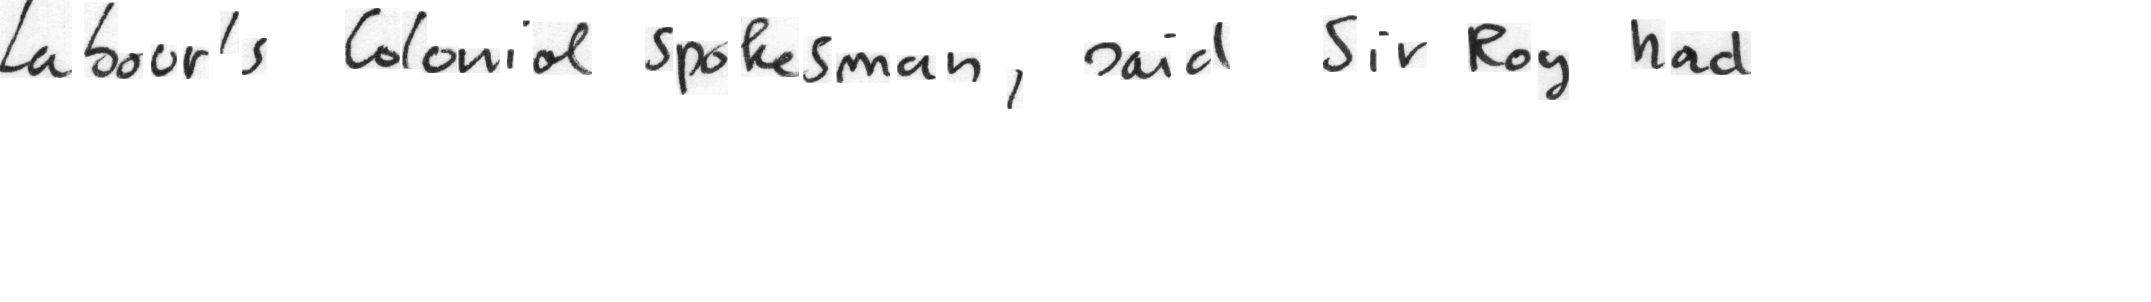 Labour's Colonial spokesman, said Sir Roy had